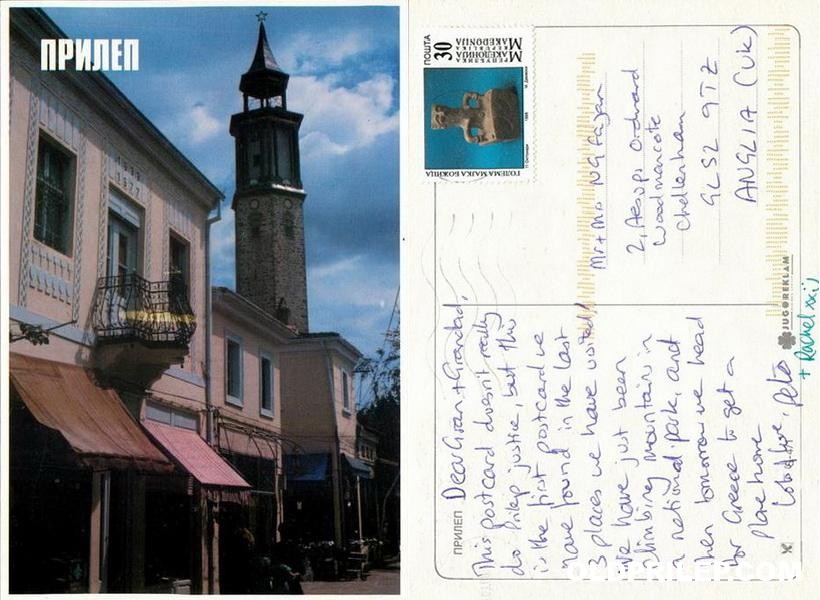 ПРИЛЕП
1933
1977
ПОШТА
30
РЕПУБЛИКА
МАКЕДОНИЈА
REPUBLIKA
MAKEDONIJA
1998
ГОЛЕМА МАЈКА БОЖИЦА
Mr + Mrs N G Fagan
2, Aesops Orchard
Woodmancote
Cheltenham
GL52 9TZ
ANGLIA (UK)
JUGOREKLAM
ПРИЛЕП
Dear Gran + Grandad,
This postcard doesn't really
do Prilep justice, but this
is the first postcard we
have found in the last
3 places we have visited!
We have just been
climbing mountains in
a national park, and
then tomorrow we head
for Greece to get a
plane home
Lots of love, Pete
+ Rachel xx :)
OLDPRILEP.COM